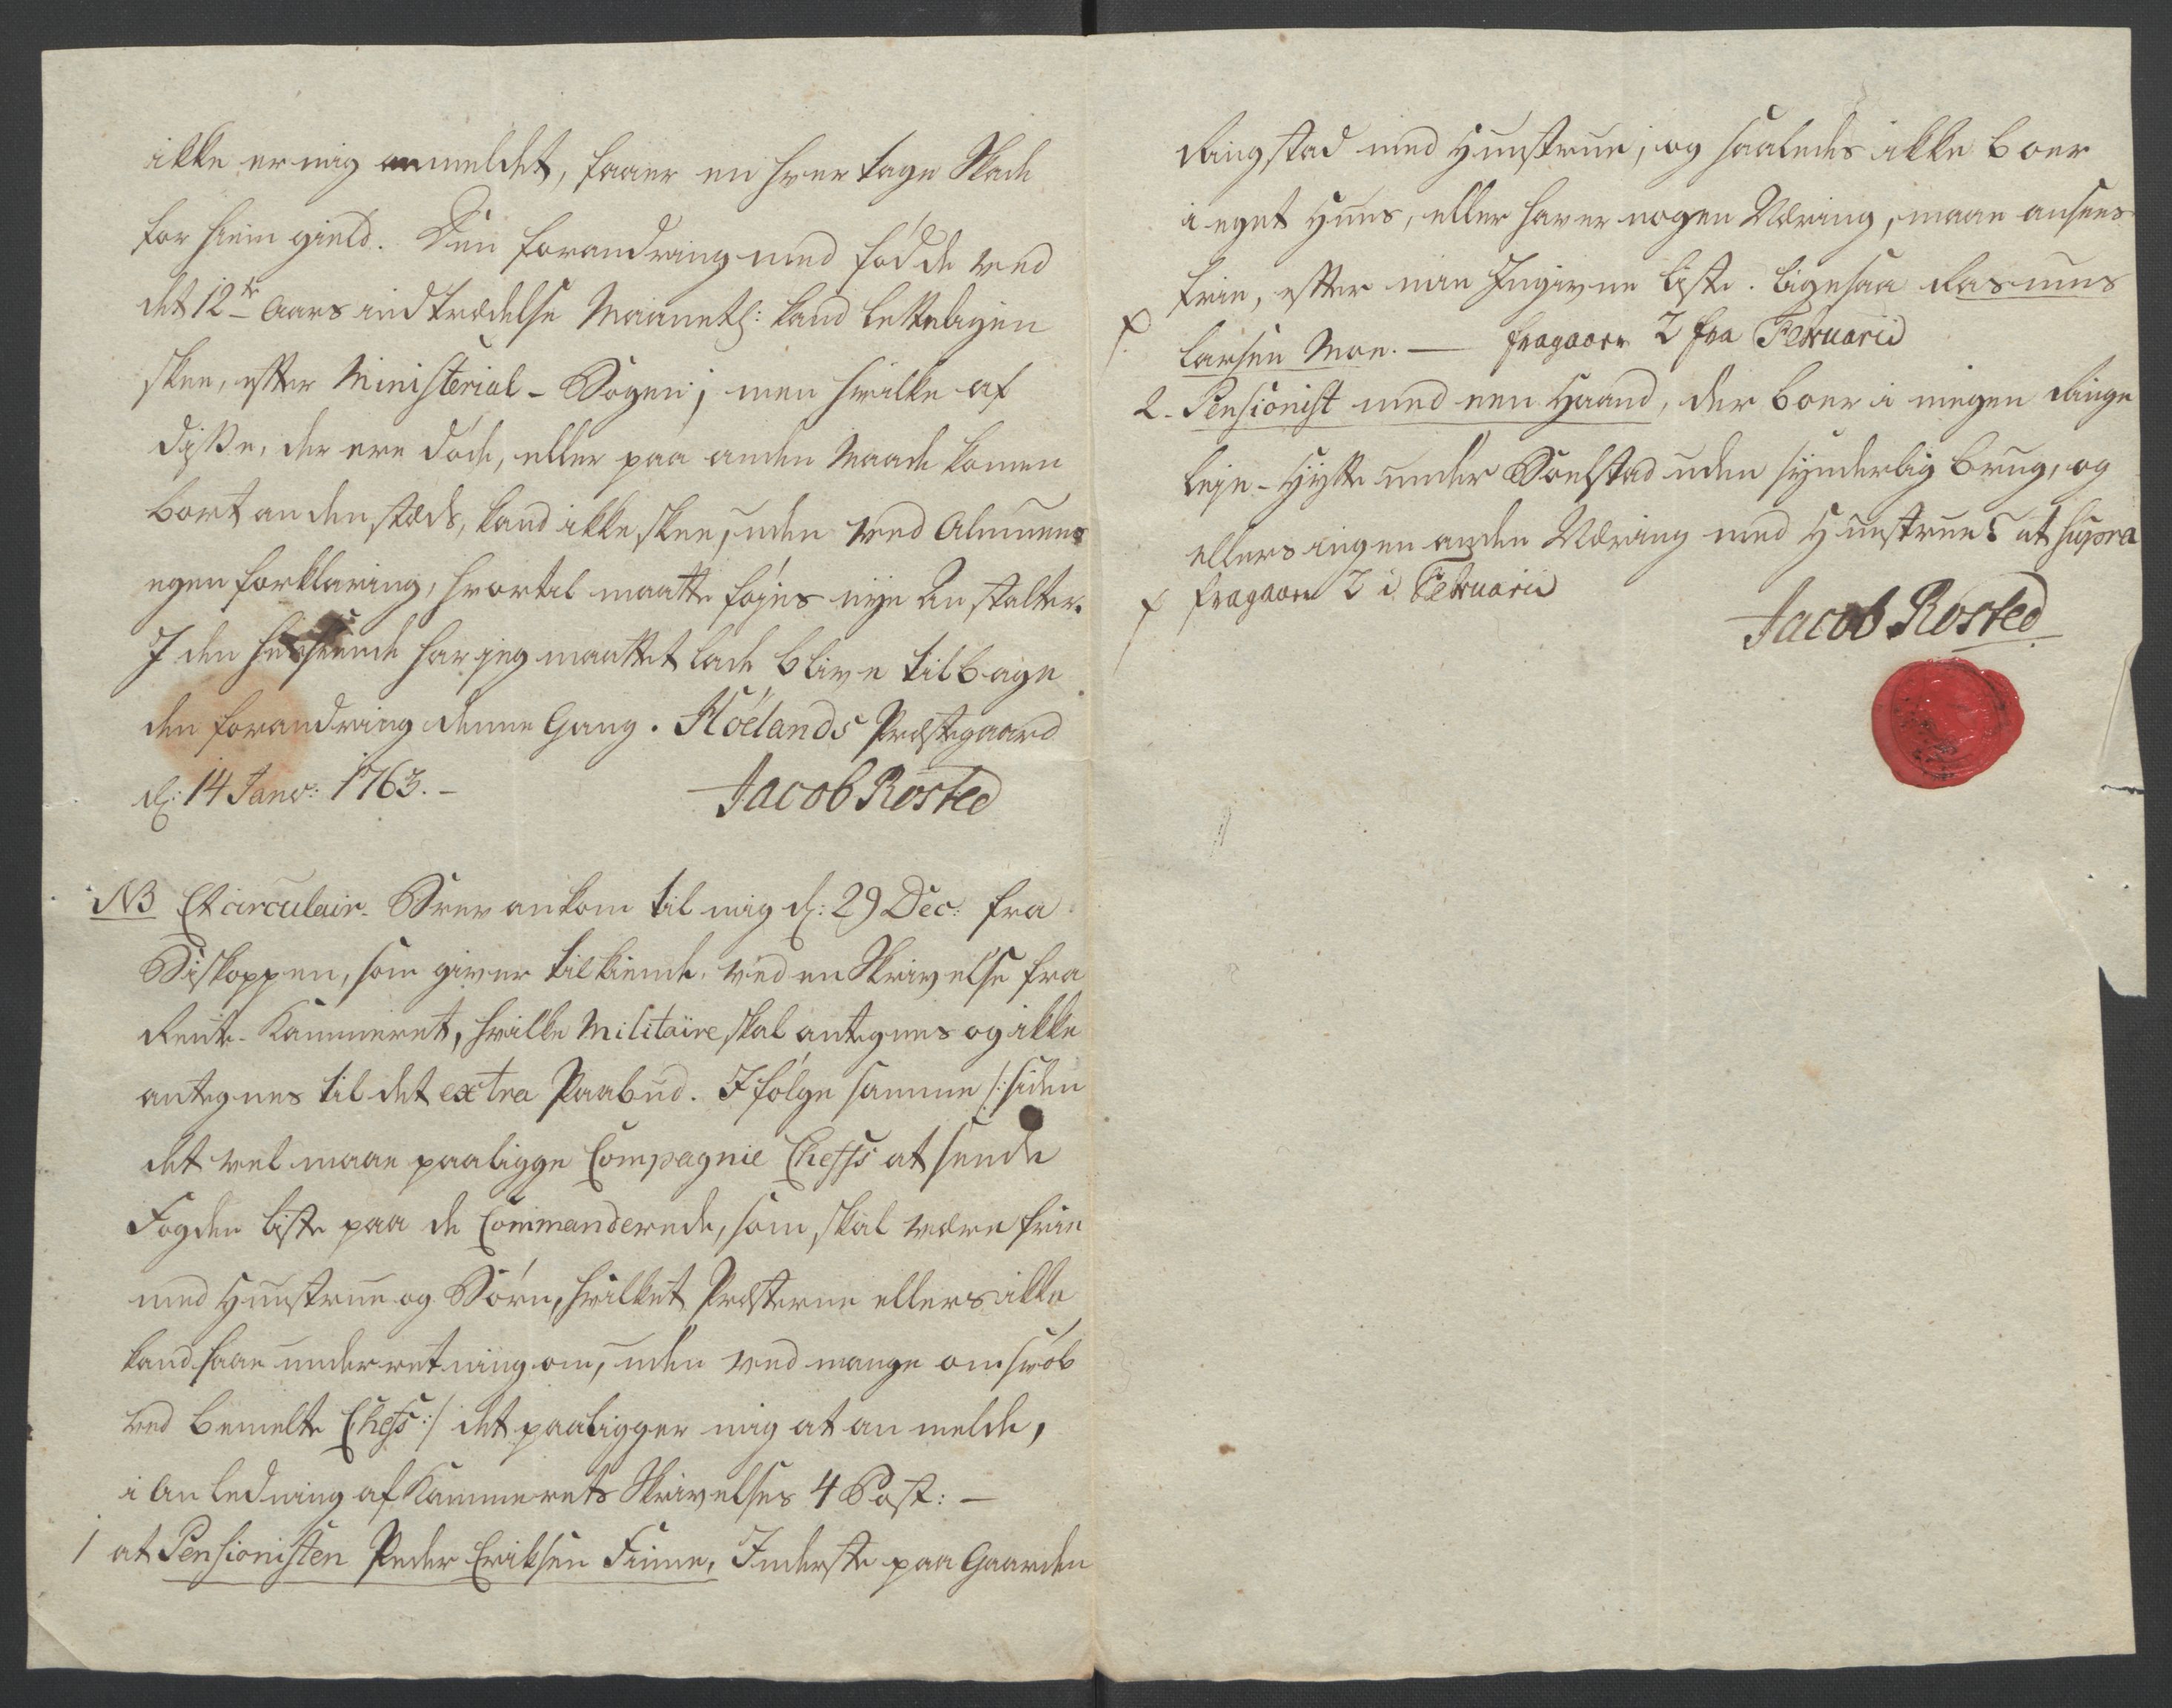 ikke er mig anmeldet, faaer en hver tage Skade
for hiem gield. Den forandring med fødde ved
det 12te Aars indtrædelse Maanetl: kand letteligen
skee, efter Ministerial-Bogen; men hvilke af
disse, der ere døde, eller paa anden Maade komen
bort andenstæds, kand ikke skee, uden ved Almuens
egen forklaring, hvortil maatte føjes nye Anstalter.
I den henseende har jeg maattet lade blive tilbage
den forandring denne Gang. Høelands Præstegaard
d: 14 Janv: 1763.-
Jacob Rosted
NB Et circulair-Brev ankom til mig d: 29 Dec: fra
Biskoppen, som giver tilkiende, ved en Skrivelse fra
Rente-Kammeret, hvilke Militaire skal antegnes og ikke
antegnes til det extra Paabud. I følge samme /: siden
det vel maae paaligge Compagnie Cheffs at sende
Fogden Liste paa de Commanderede, som skal være frie
med Huustrue og Børn, hvilket Præsterne ellers ikke
kand faae underretning om, uden ved mange omsvøb
ved bemelte Chefs :/ det paaligger mig at anmelde,
i Anledning af Kammerets Skrivelses 4 Post: -
1 at Pensionisten Peder Eriksen Finne, Inderste paa Gaarden
Ringstad med Huustrue, og saaledes ikke boer
i eget Huus, eller haver nogen Næring, maae ansees
frie, efter min Ingivne Liste. Ligesaa Rasmus
Larsen Moe. — fragaaer 2 fra Februarii
2. Pensionist med een Haand, der boer i megen ringe
Leje-Hytte under Bolstad uden synderlig brug, og
ellers ingen anden Næring med Huustrue ut supra
fragaaer 2 i Februarii
Jacob Rosted